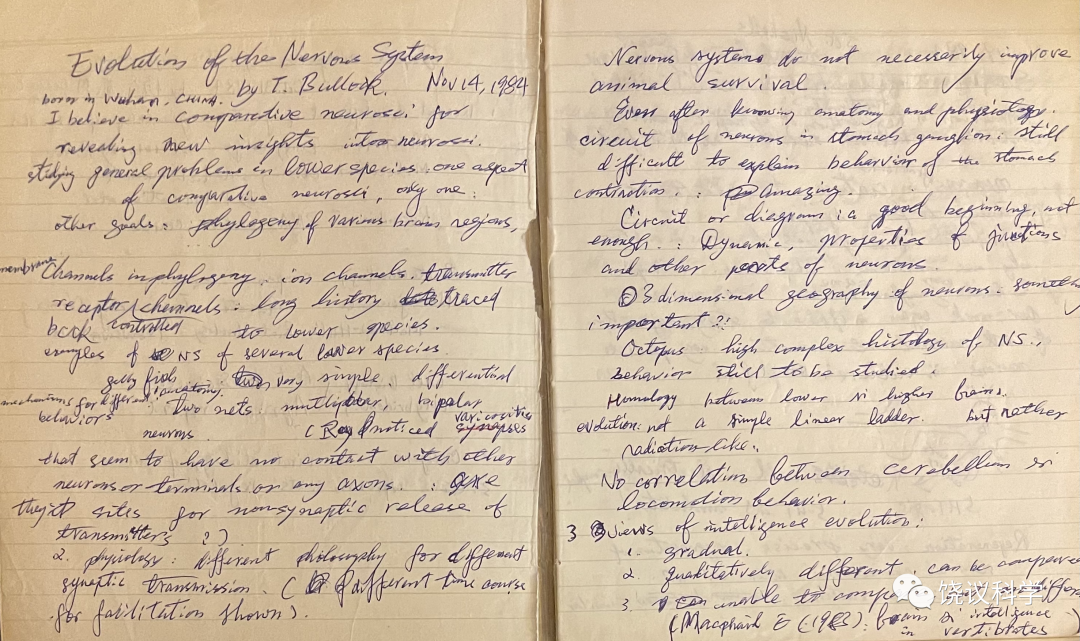 Evolution of the Nervous System
by T. Bullock. Nov 14, 1984
born in Wuhan, CHINA.
I believe in comparative neurosci for
revealing new insights into neurosci.
studying general problems in lower species: one aspect
of comparative neurosci, only one:
other goals: phylogeny of various brain regions,
membrane
Channels in phylogeny. ion channels. transmitter
receptor/channels: long history traced
controlled
back to lower species.
examples of NS of several lower species.
jelly fish
anatomy: very simple. differential
mechanisms for different behaviors
two nets. multipolar, bipolar
neurons. (noticed varicosities synapses
that seem to have no contact with other
neurons or terminals or any axons. : are
they sites for nonsynaptic release of
transmitters ?)
2. physiology: different philosophy for different
synaptic transmission. (different time course
for facilitation shown).
Nervous systems do not necessarily improve
animal survival.
Even after knowing anatomy and physiology.
circuit of neurons in stomach ganglion: still
difficult to explain behavior of the stomach
contraction. : Amazing.
Circuit or diagram: a good beginning, not
enough. : Dynamic, properties of junctions
and other parts of neurons.
3 dimensional geography of neurons.
important?!
Octopus high complex histology of NS.,
behavior still to be studied.
Homology between lower higher brains.
evolution: not a simple linear ladder. but rather
radiation-like.
No correlation between cerebellum
locomotion behavior.
3 views of intelligence evolution:
1. gradual.
2. qualitatively different, can be compared
3. unable to
(Macphail E (1983): brain & intelligence
in vertibrates)
饶议科学